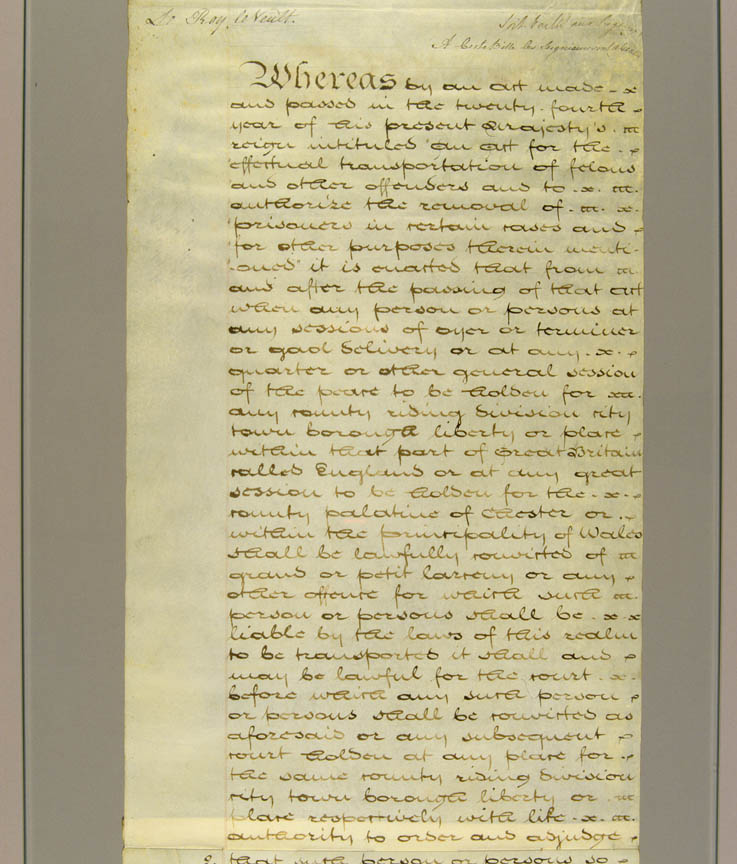 Le Roy le Veult.
Soit Baillé aux Seigneurs
A Ceste Bille les Seigneurs
Whereas by an act made
and passed in the twenty fourth
year of his present Majesty's
reign intituled "an act for the
"effectual transportation of felons
"and other offenders and to
"authorize the removal of
"prisoners in certain cases and
"for other purposes therein menti-
"oned" it is enacted that from
and after the passing of that act
when any person or persons at
any sessions of oyer or terminer
or gaol delivery or at any
quarter or other general session
of the peace to be holden for
any county riding division city
town borough liberty or place
within that part of Great Britain
called England or at any great
session to be holden for the
county palatine of Chester or
within the principality of Wales
shall be lawfully convicted of
grand or petit larceny or any
other offence for which such
person or persons shall be
liable by the laws of this realm
to be transported it shall and
may be lawful for the court
before which any such person
or persons shall be convicted as
aforesaid or any subsequent
court holden at any place for
the same county riding division
city town borough liberty or
place respectively with like
authority to order and adjudge
2. that such person or persons so